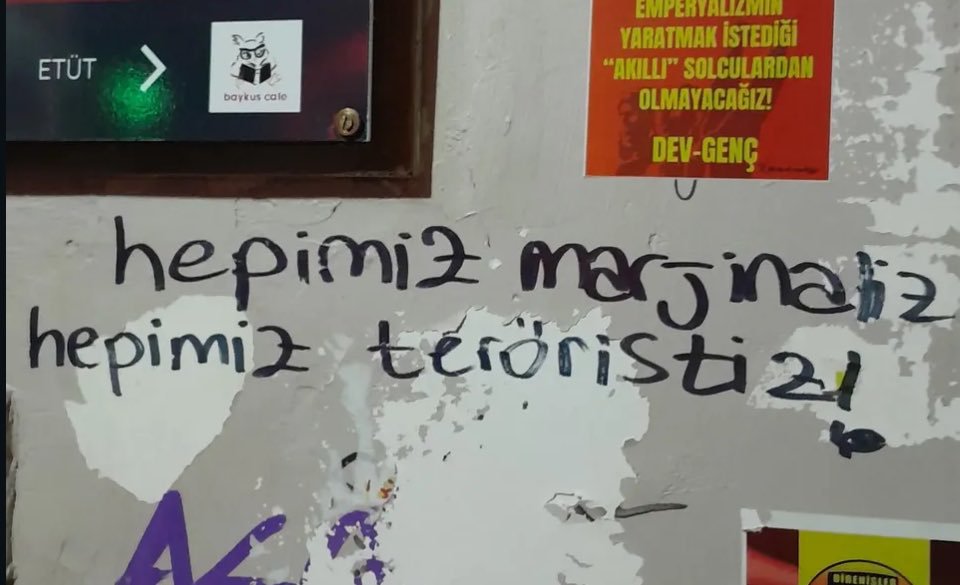 ETÜT
baykus cafe
EMPERYALİZMİN
YARATMAK İSTEDİĞİ
“AKILLI” SOLCULARDAN
OLMAYACAĞIZ!
DEV-GENÇ
hepimiz marjinaliz
hepimiz teröristiz!
DİRENİŞLER